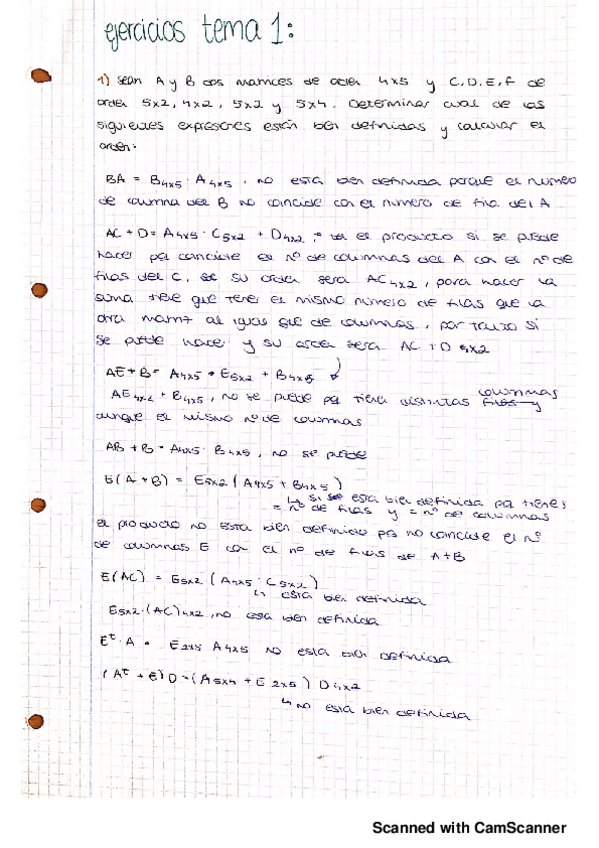 ejercicios tema 1:
1) Sean A y B dos matrices de orden 4x5 y C, D, E, F de
orden 5x2, 4x2, 5x2 y 5x4. Determinar cual de las
siguientes expresiones están bien definidas y calcular el
orden:
BA = B4x5 · A4x5, no esta bien definida porque el numero
de columna del B no coincide con el numero de fila del A
AC + D = A4x5 · C5x2 + D4x2, el producto si se puede
hacer pq coincide el nº de columnas del A con el nº de
filas del C, su orden sera AC4x2, para hacer la
suma tiene que tener el mismo numero de filas que la
otra matriz al igual que de columnas, por tanto si
se puede hacer y su orden sera AC+D 4x2
AE+B = A4x5 · E5x2 + B4x5
AE4x2 + B4x5, no se puede pq tiene distintas columnas
aunque el mismo nº de columnas
AB + B = A4x5 · B4x5, no se puede
E(A+B) = E5x2 (A4x5 + B4x5)
↳ si esta bien definida pq tienen
= nº de filas y = nº de columnas
el producto no esta bien definido pq no coincide el nº
de columnas E con el nº de filas de A+B
E(AC) = E5x2 (A4x5 · C5x2)
↳ esta bien definida
E5x2·(AC)4x2, no esta bien definida
Eᵗ·A = E2x5 A4x5 no esta bien definida
(Aᵗ + E)D = (A5x4 + E2x5) D4x2
↳ no esta bien definida
Scanned with CamScanner